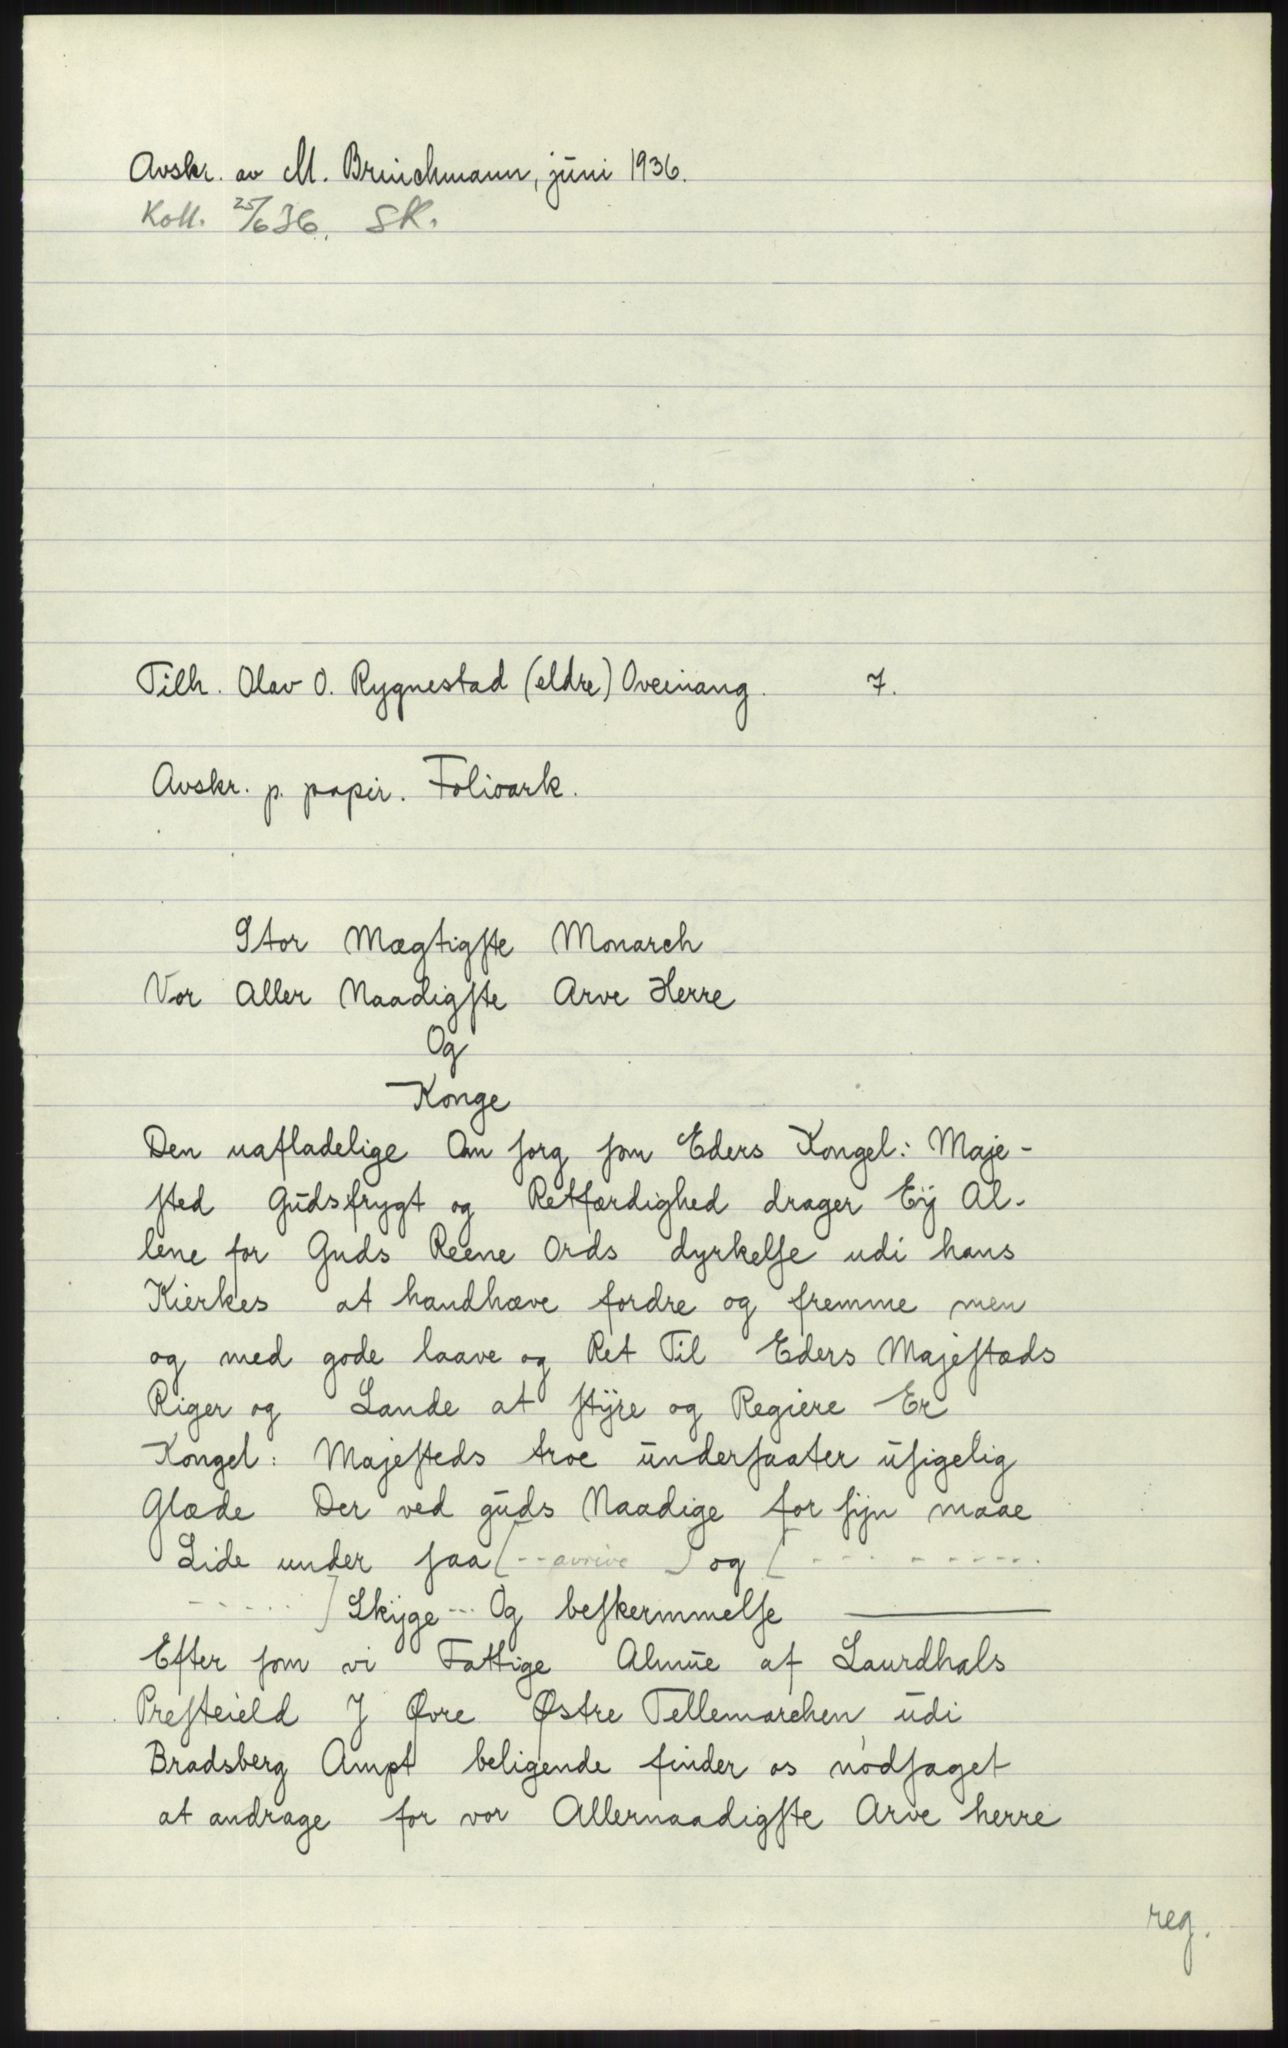 Avskr. av M. Brinchmann, juni 1936.
Koll. 25/6 36. SK.
Tilh. Olav O. Rygnestad (eldre) Oveinang. 7.
Avskr. p. papir. Folioark.
Stor Mægtigste Monarch
Vor Aller Naadigste Arve Herre
Og
Konge
Den uafladelige Om sorg som Eders Kongel: Maje-
sted Gudsfrygt og Retfærdighed drager Eÿ Al-
lene for Guds Reene Ords dyrkelse udi hans
Kierkes at handhæve fordre og fremme men
og med gode laave og Ret Til Eders Majestæds
Riger og Lande at stÿre og Regiere Er
Kongel: Majesteds troe undersaater usigelig
Glæde Der ved guds Naadige for sÿn maae
Lide under saa [-- avrive ] og [- - - - - - - - -
- - - - - ] Skÿge --- Og beskermmelse ———
Efter som vi Fattige Almue af Laurdhals
Presteield J Øvre Østre Tellemarchen udi
Bradsberg Ampt beligende finder os nødsaget
at andrage for vor Allernaadigste Arve herre
reg.